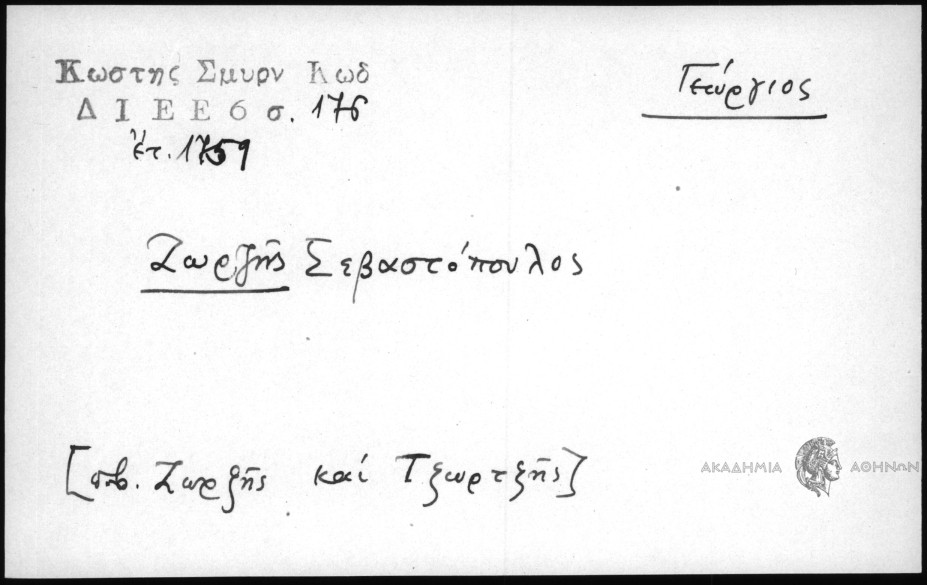 Κωστης Σμυρν Κωδ
Δ Ι Ε Ε 6 σ. 176
ἔτ. 1759
Γεώργιος
Ζωρζῆς Σεβαστόπουλος
[πβ. Ζωρζῆς καί Τζωρτζῆς]
ΑΚΑΔΗΜΙΑ ΑΘΗΝΩΝ